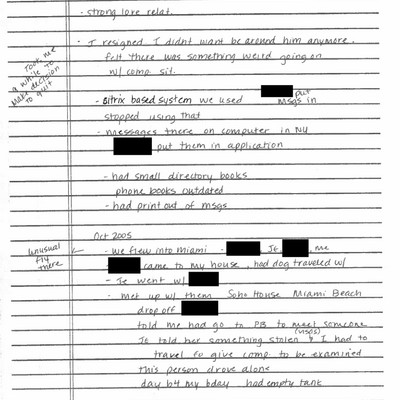 - strong love relat.
- I resigned I didnt want be around him anymore.
felt there was something weird going on
w/ comp. sit.
Took me
a while to
make decision
to quit
- Bitrix based system we used put
msgs in
stopped using that
- messages there on computer in NY
put them in application
- had small directory books
phone books outdated
- had print out of msgs
Oct 2005
- we flew into miami - , JE , me
unusual
fly
there
- came to my house, had dog traveled w/
- JE went w/
- met up w/ them Soho House Miami Beach
drop off
told me had go to PB to meet someone
JE told her something stolen & I had to
travel to give comp to be examined
this person drove alone
day b4 my bday had empty tank